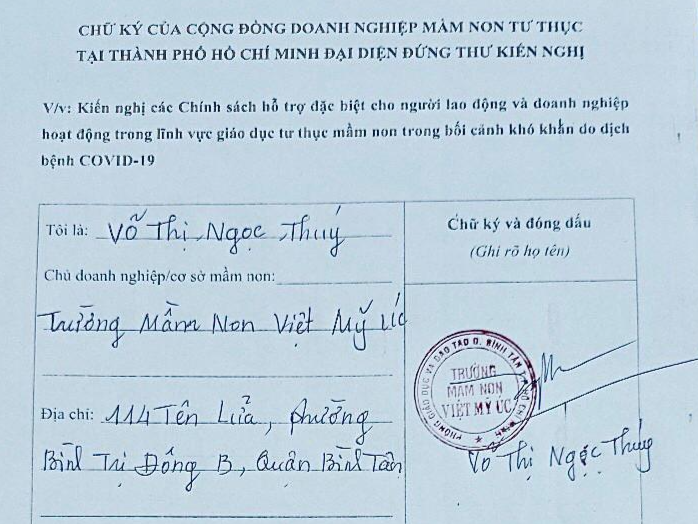 CHỮ KÝ CỦA CỘNG ĐỒNG DOANH NGHIỆP MẦM NON TƯ THỤC
TẠI THÀNH PHỐ HỒ CHÍ MINH ĐẠI DIỆN ĐỨNG THƯ KIẾN NGHỊ
V/v: Kiến nghị các Chính sách hỗ trợ đặc biệt cho người lao động và doanh nghiệp
hoạt động trong lĩnh vực giáo dục tư thục mầm non trong bối cảnh khó khăn do dịch
bệnh COVID-19
Tôi là: Võ Thị Ngọc Thuý
Chủ doanh nghiệp/cơ sở mầm non:
Trường Mầm Non Việt Mỹ Úc
Địa chỉ: 114 Tên Lửa, phường
Bình Trị Đông B, Quận Bình Tân
Chữ ký và đóng dấu
(Ghi rõ họ tên)
PHÒNG GIÁO DỤC VÀ ĐÀO TẠO Q. BÌNH TÂN T.P HỒ CHÍ MINH
TRƯỜNG
MẦM NON
VIỆT MỸ ÚC
Võ Thị Ngọc Thúy